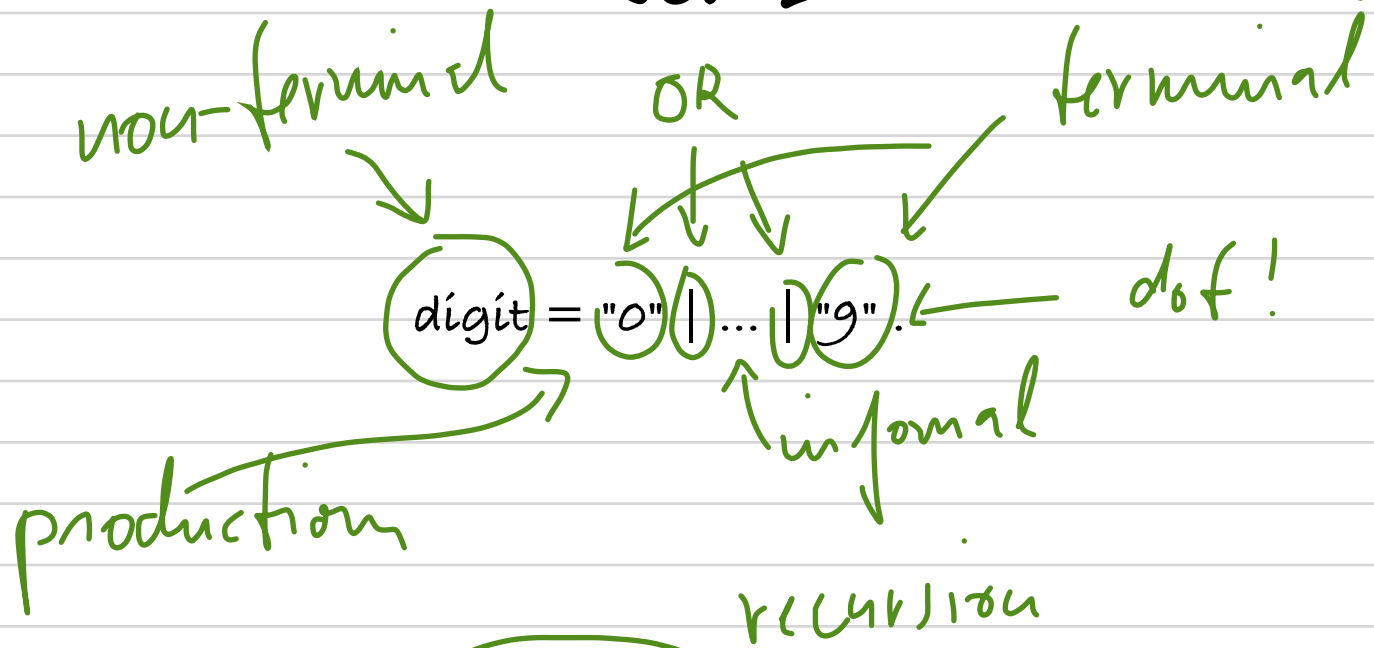 non-terminal
OR
terminal
digit = "0" | ... | "9".
dot!
informal
production
recursion